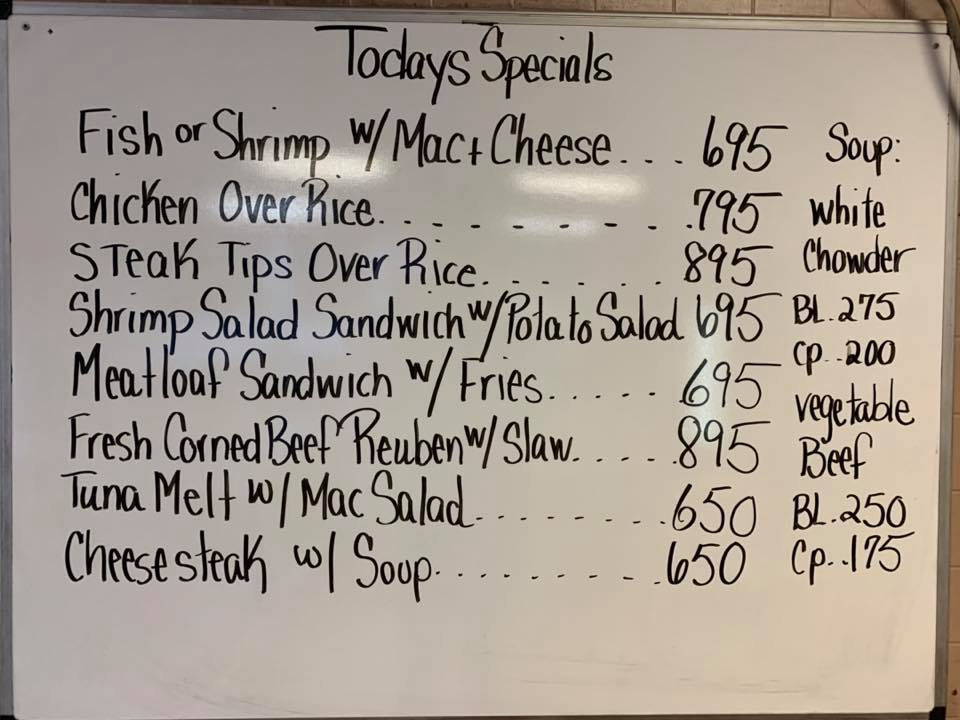 Todays Specials
Fish or Shrimp w/ Mac + Cheese... 695
Chicken Over Rice.. - - - - - - - .795
Steak Tips Over Rice....... 895
Shrimp Salad Sandwich w/ Potato Salad 695
Meatloaf Sandwich w/ Fries..... 695
Fresh Corned Beef Reuben w/ Slaw..... 895
Tuna Melt w/ Mac Salad......... 650
Cheesesteak w/ Soup.......... 650
Soup:
white
Chowder
BL. 275
Cp.. 200
vegetable
Beef
BL. 250
Cp... 175